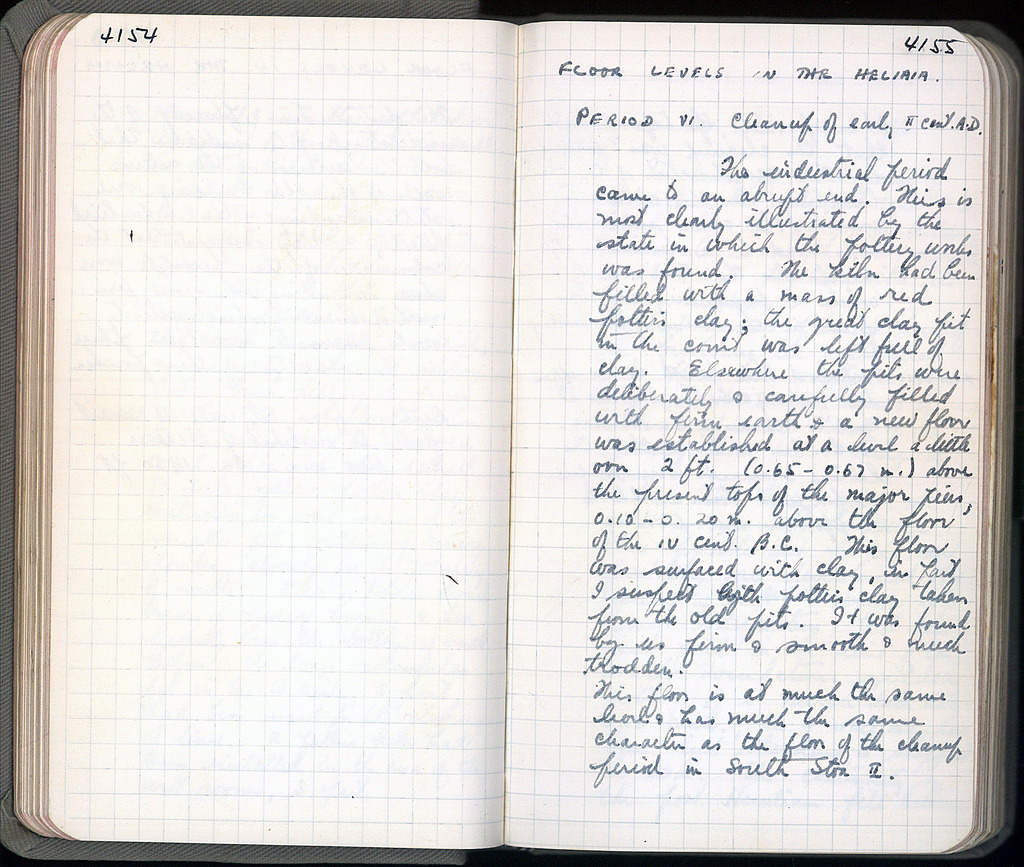 4154
4155
FLOOR LEVELS IN THE HELIAIA.
PERIOD VI. Cleanup of early II cent. A.D.
The industrial period
came to an abrupt end. This is
most clearly illustrated by the
state in which the pottery works
was found. The kiln had been
filled with a mass of red
potter's clay; the great clay pit
in the court was left full of
clay. Elsewhere the pits were
deliberately & carefully filled
with firm earth & a new floor
was established at a level a little
over 2 ft. (0.65 - 0.67 m.) above
the present tops of the major piers,
0.10 - 0.20 m. above the floor
of the IV cent. B.C. This floor
was surfaced with clay, in fact
I suspect with potters clay taken
from the old pits. It was found
by us firm & smooth & much
trodden.
This floor is at much the same
level & has much the same
character as the floor of the cleanup
period in South Stoa II.